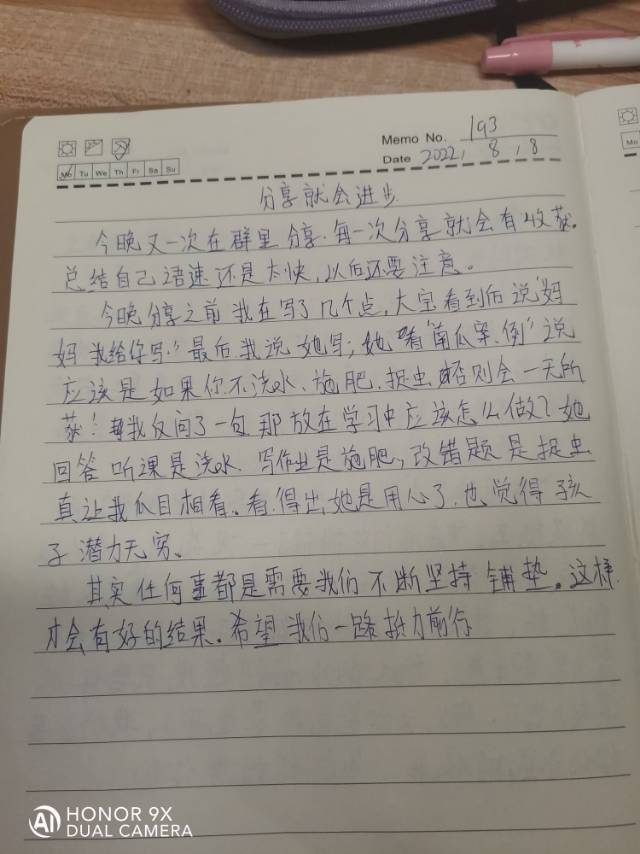 Memo No. 193
Mo Tu We Th Fr Sa Su
Date 2022, 8, 8
分享就会进步
今晚又一次在群里分享.每一次分享就会有收获.
总结自己语速还是太快,以后还要注意。
今晚分享之前我在写了几个点,大宝看到后说"妈
妈我给你写."最后我说她写;她看"南瓜案例"说
应该是如果你不浇水、施肥.捉虫否则会一无所
获!我反问了一句那放在学习中应该怎么做?她
回答听课是浇水.写作业是施肥,改错题是捉虫
真让我瓜目相看。看得出她是用心了.也觉得孩
子潜力无穷、
其实任何事都是需要我们不断坚持铺垫。这样
才会有好的结果.希望我们一路 前行
HONOR 9X
DUAL CAMERA